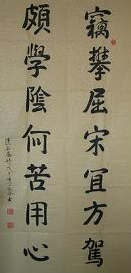 竊攀屈宋宜方駕
頗學陰何苦用心